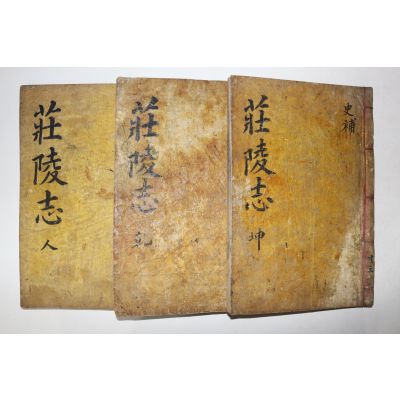 史補
莊陵志 坤
莊陵志
莊陵志 人